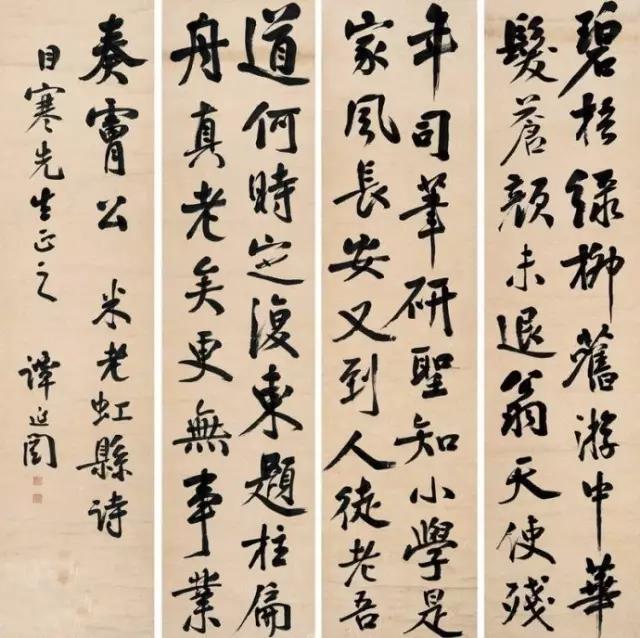 碧榆綠柳舊游中華
髮蒼顏未退翁天使殘
年司筆研聖知小學是
家風長安又到人徒老吾
道何時定復東題柱扁
舟真老矣更無事業
奏膚公 米老虹縣詩
目寒先生正之 譚延闓